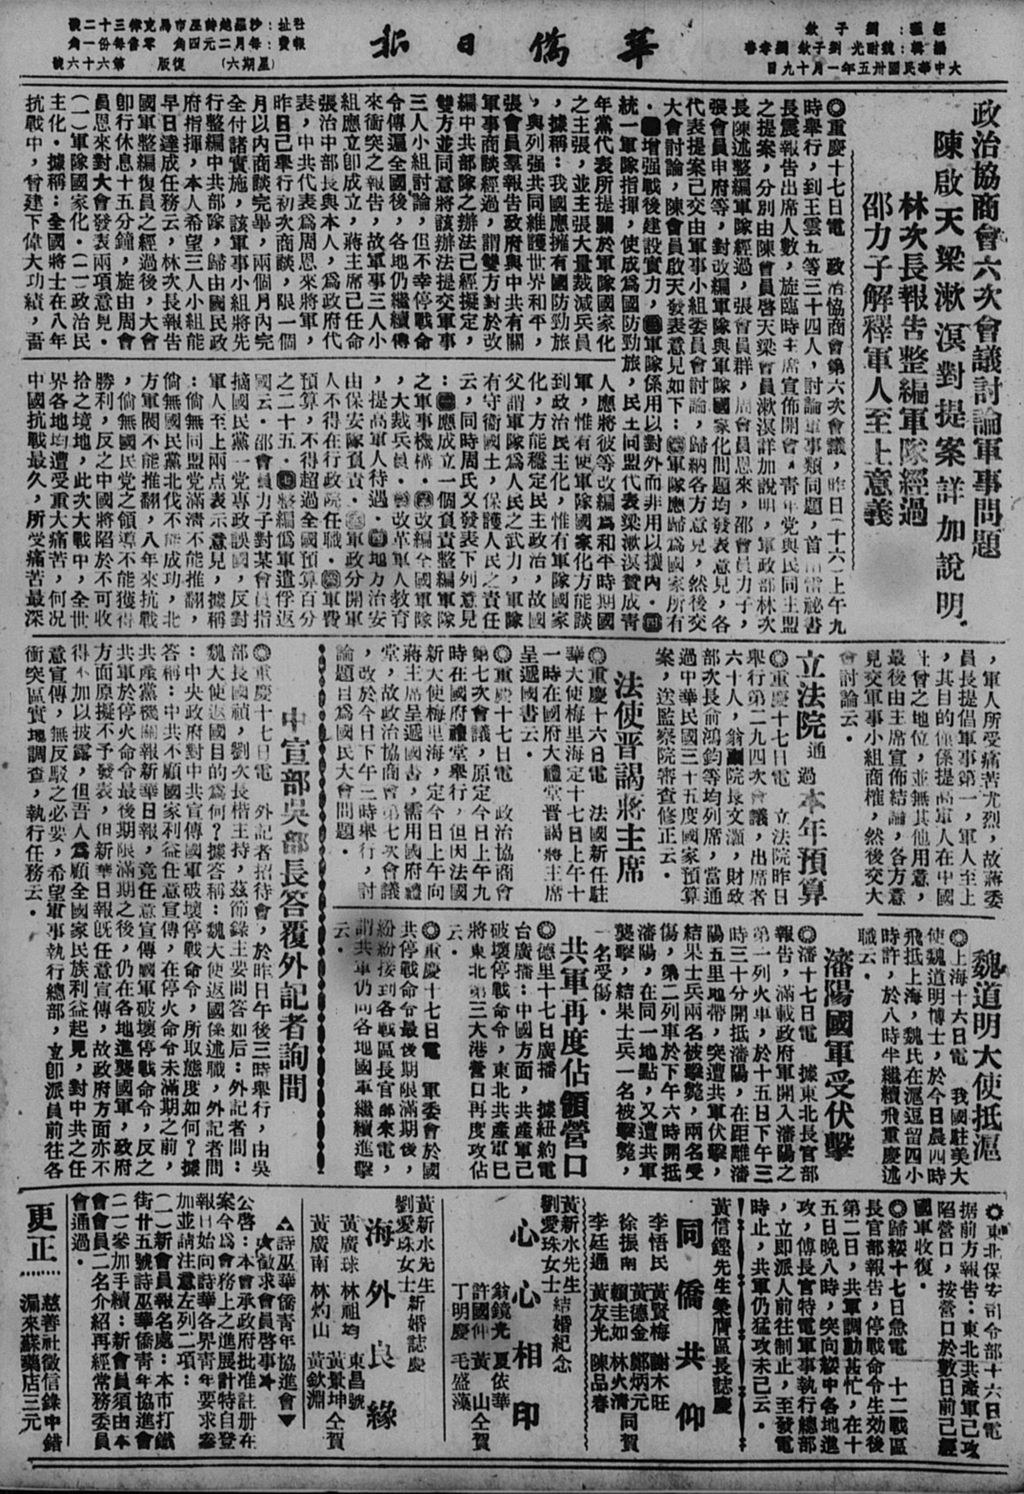 華僑日報
大中華民國卅五年一月十九日
社址：沙羅越詩巫市馬克律三十二號
報費：每月二元四角 零售每份一角
(星期六) 復版 第六十六號
政治協商會六次會議討論軍事問題
陳啟天梁漱溟對提案詳加說明．
林次長報告整編軍隊經過
邵力子解釋軍人至上意義
◎重慶十七日電 政治協商會第六次會議，昨日(十六)上午九
時舉行，到王雲五等三十四人，討論軍事類同題，首由雷祕書
長震報告出席人數，旋臨時主席宣佈開會，青年党與民同主盟
之提案，分別由陳會員啓天梁會員漱溟詳加說明，軍政部林次
長陳述整編軍隊經過，張會員群，周會員恩來，邵會員力子，
張會員申府等，對改編軍隊與軍隊國家化問題均發表意見，各
代表提案已交由軍事小組委員會討論，歸納各方意見，然後交
大會討論，陳會員啟天發表意見如下：㊀軍隊應歸爲國家所有
．㊁增强戰後建設實力，㊂軍隊係用以對外而非用以攘內．㊃
統一軍隊指揮，使成爲國防勁旅，民主同盟代表梁漱溟贊成靑
年黨代表所提關於軍隊國家化
之主張，並主張大量裁減兵員
，據稱：我國應擁有國防勁旅
，與列强共同維護世界和平，
張會員羣報告政府與中共有關
軍事商談經過，謂雙方對於改
編中共部隊之辦法已經擬定，
雙方並同意將該辦法提交軍事
三人小組討論，但不幸停戰命
令傳還全國後，各地仍繼續傳
來衝突之報告，故軍事三人小
組應立卽成立，蔣主席已任命
張治中部長與本人，爲政府代
表，中共代表爲周恩來將軍，
昨日已舉行初次商談，限一個
月以內商談完畢，兩個月內完
全付諸實施，該軍事小組將先
行整編中共部隊，歸由國民政
府指揮，本人希望三人小組能
早日達成任務云，林次長報告
國軍整編復員之經過後，大會
卽行休息十五分鐘，旋由周會
員恩來對大會發表兩項意見．
(一)軍隊國家化．(二)政治民
主化．據稱：全國將士在八年
抗戰中，曾建下偉大功績，吾
人應將彼等改編爲和平時期國
軍，惟有使軍隊國家化方能談
到政治民主化，惟有軍隊國家
化，方能穩定民主政治，故國
父謂軍隊爲人民之武力，軍隊
有守衛國土，保護人民之責任
云，同時周氏又發表下列意見
：㊀應成立一個負責整編軍隊
之軍事機構．㊁改編全國軍隊
，大裁兵員．㊂改革軍人教育
，提高軍人待遇．㊃地方治安
由保安隊負責．㊄軍政分開軍
人不得在行政院任職．㊅軍費
預算，不得超過全國預算百分
之二十五．㊆整編僞軍遣俘返
國云．邵會員力子對某會員指
摘國民黨一党專政誤國，反對
軍人至上兩点表示意見，據稱
：倘無同盟党滿淸不能推翻，
倘無國民黨北伐不能成功，北
方軍閥不能推翻，八年來抗戰
，倘無國民党之領導不能獲得
勝利，反之中國將陷於不可收
拾之境地，此次大戰中，全世
界各地均遭受重大痛苦，何況
中國抗戰最久，所受痛苦最深
，軍人所受痛苦尤烈，故蔣委
員長提倡軍事第一，軍人至上
，其目的僅係提高軍人在中國
社會之地位，並無其他用意，
最後由主席宣佈結論，各方意
見交軍事小組商權，然後交大
會討論云．
立法院通過本年預算
◎重慶十七日電 立法院昨日
舉行第二九四次會議，出席者
六十人，翁副院長文灝，財政
部次長俞鴻鈞等均列席，當通
過中華民國三十五度國家預算
案，送監察院審查修正云．
法使晋謁蔣主席
◎重慶十六日電 法國新任駐
華大使梅里海定十七日上午十
一時在國府大禮堂晋謁蔣主席
呈遞國書云．
◎重慶十七日電 政治協商會
第七次會議，原定今日上午九
時在國府禮堂舉行，但因法國
新大使梅里海，定今日上午向
蔣主席呈遞國書，需用國府禮
堂，故政治協商會第七次會議
，改於今日下午二時舉行，討
論題目爲國民大會問題．
中宣部吳部長答覆外記者詢問
◎重慶十七日電 外記者招待會，於昨日午後三時舉行，由吳
部長國禎，劉次長楷主持，茲節錄主要問答如后：外記者問：
魏大使返國目的爲何？據答稱：魏大使返國係述職，外記者問
：中央政府對中共宣傳國軍破壞停戰命令，所取態度如何？據
答稱：中共不顧國家利益任意宣傳，在停火命令未滿期之前，
共產黨機關報新華日報，竟任意宣傳國軍破壞停戰命令，反之
共軍於停火命令最後期限滿期之後，仍在各地進襲國軍，政府
方面原擬不予發表，但新華日報旣任意宣傳，故政府方面亦不
得不加以披露，但吾人爲顧全國家民族利益起見，對中共之任
意宣傳，無反駁之必要，希望軍事執行總部，立卽派員前往各
衝突區實地調查，執行任務云．
魏道明大使抵滬
◎上海十六日電 我國駐美大
使魏道明博士，於今日晨四時
飛抵上海，魏氏在滬逗留四小
時許，於八時半繼續飛重慶述
職云．
瀋陽國軍受伏擊
◎瀋十七日電 據東北長官部
報告，滿載政府軍開入瀋陽之
第一列火車，於十五日下午三
時三十分開抵瀋陽，在距離瀋
陽五里地帶，突遭共軍伏擊，
結果士兵兩名被擊斃，兩名受
傷，第二列車於下午六時開抵
瀋陽，在同一地點，又遭共軍
襲擊，結果士兵一名被擊斃，
一名受傷．
共軍再度佔領營口
◎德里十七日廣播 據紐約電
台廣播：中國方面，共產軍已
破壞停戰命令，東北共產軍已
將東北第三大港營口再度攻佔
云．
◎重慶十七日電 軍委會於國
共停戰命令最後期限滿期後，
紛紛接到各戰區長官部來電，
謂共軍仍向各地國軍繼續進擊
云．
◎東北保安司令部十六日電
据前方報告：東北共產軍已攻
陷營口，按營口於數日前已經
國軍收復．
◎歸綏十七日急電 十二戰區
長官部報告，停戰命令生効後
第二日，共軍調動甚忙，在十
五日晚八時，突向綏中各地進
攻，傅長官特電軍事執行總部
，立卽派人前往制止，至發電
時止，共軍仍猛攻未已云．
黃信鏗先生榮膺區長誌慶
同僑共仰
李悟民 黃賢梅 謝木旺
徐振南 黃德金 鄭炳元
賴圭如 林火淸 同賀
李廷通 黃友光 陳品春
黃新水先生
劉愛珠女士 結婚紀念
心心相印
翁鏡光 夏依華
許國仲 黃山 仝賀
丁明慶 毛盛藻
黃新水先生
劉愛珠女士 新婚誌慶
海外良緣
東昌號
黃廣球 林祖均 黃景坤 仝賀
黃廣南 林灼山 黃欽淵
▲詩巫華僑青年協進會▼
★徵求會員啓事★
公啓：本會承政府批准註册在
案今爲會務上之進展計特自登
報日始向詩華各界靑年要求參
加並請注意左列二項：
(一)新會員報名處：本市打鐵
街廿五號詩巫華僑靑年協進會
(二)參加手續：新會員須由本
會會員二名介紹再經常務委員
會通過．
更正
慈善社徵信錄中錯
漏來蘇藥店三元